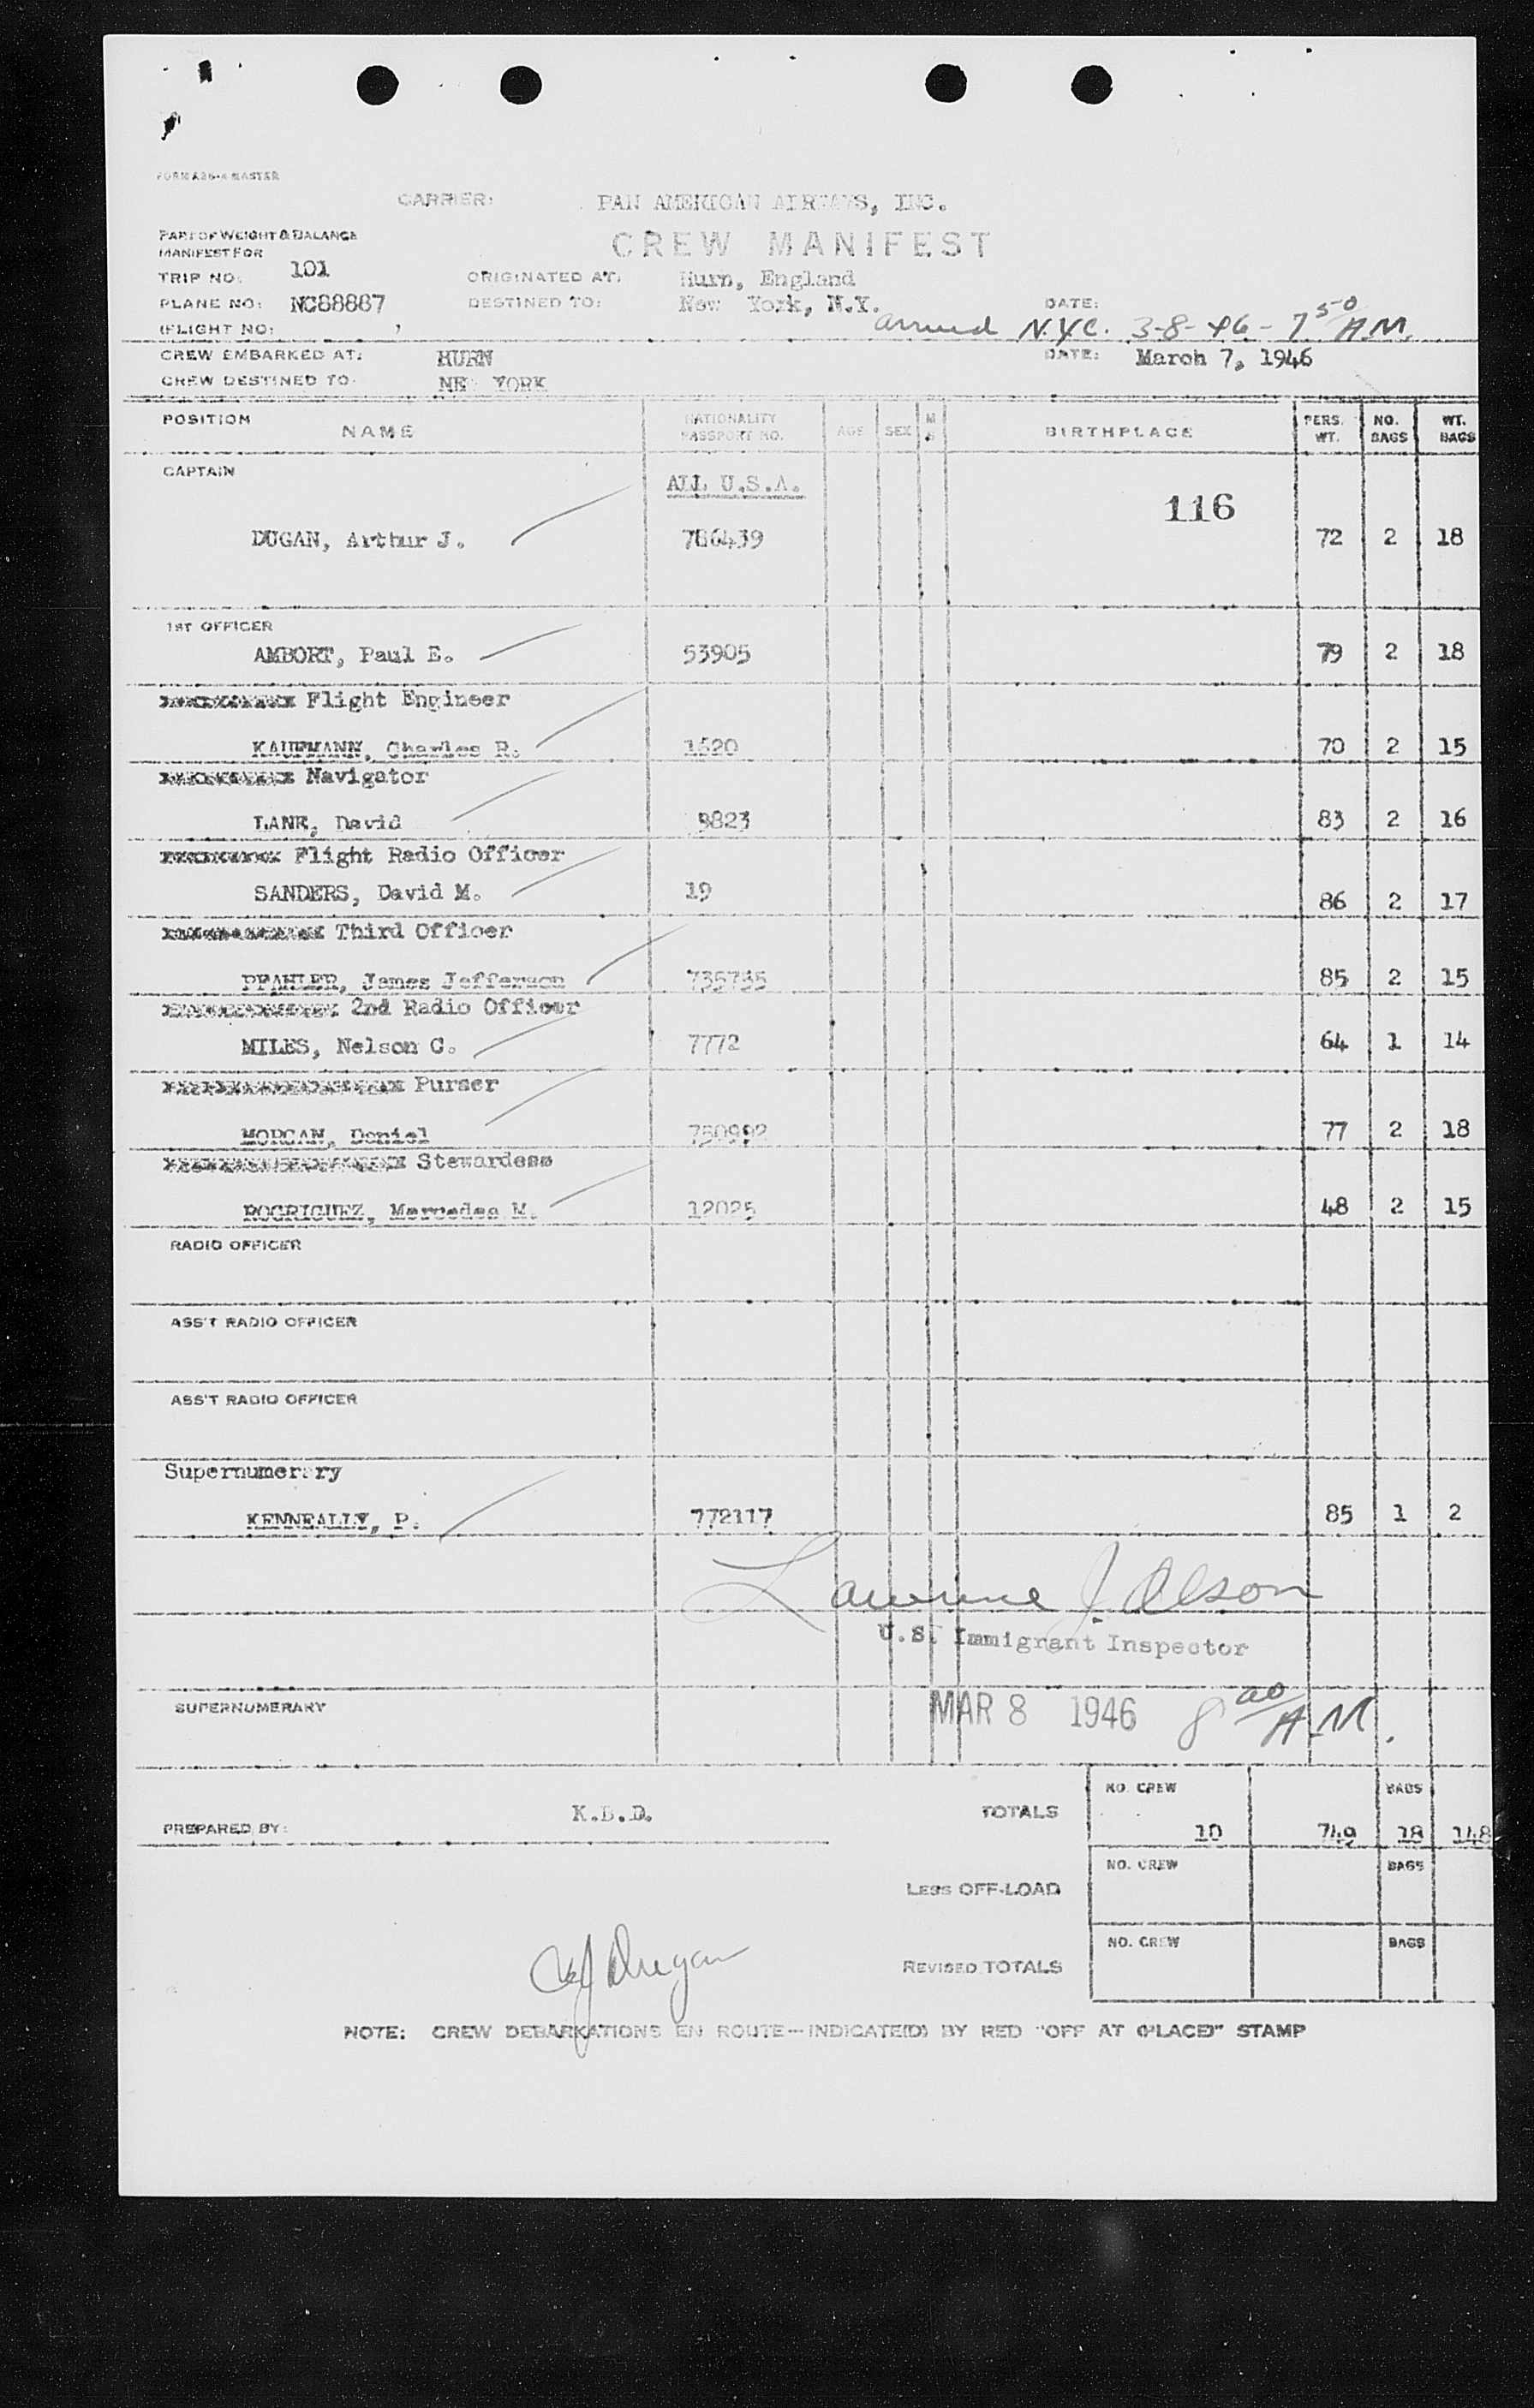 FORM A26-A MASTER
CARRIER: PAN AMERICAN AIRWAYS, INC.
PART OF WEIGHT & BALANCE
CREW MANIFEST
MANIFEST FOR
TRIP NO: 101 ORIGINATED AT: Hurn, England
PLANE NO: NC88887 DESTINED TO: New York, N.Y. DATE:
(FLIGHT NO: arrived N.Y.C. 3-8-46 - 7 50 A.M.
CREW EMBARKED AT: HURN DATE: March 7, 1946
CREW DESTINED TO: NE YORK
POSITION NAME NATIONALITY PASSPORT NO. AGE SEX M S BIRTHPLACE PERS. WT. NO. BAGS WT. BAGS
CAPTAIN
ALL U.S.A.
116
DUGAN, Arthur J. 786439 72 2 18
1ST OFFICER
AMBORT, Paul E. 53905 79 2 18
Flight Engineer
KAUFMANN, Charles R. 1620 70 2 15
Navigator
LANE, David 9823 83 2 16
Flight Radio Officer
SANDERS, David M. 19 86 2 17
Third Officer
PFAHLER, James Jefferson 735735 85 2 15
2nd Radio Officer
MILES, Nelson C. 7772 64 1 14
Purser
MORGAN, Daniel 750992 77 2 18
Stewardess
ROGRIGUEZ, Mercedes M. 12025 48 2 15
RADIO OFFICER
ASS'T RADIO OFFICER
ASS'T RADIO OFFICER
Supernumerary
KENNEALLY, P. 772117 85 1 2
Lawrence J. Olson
U.S. Immigrant Inspector
SUPERNUMERARY MAR 8 1946 8 00 A.M.
NO. CREW BAGS
PREPARED BY: K.B.D. TOTALS 10 749 18 148
NO. CREW BAGS
LESS OFF-LOAD
NO. CREW BAGS
A J Dugan
REVISED TOTALS
NOTE: CREW DEBARKATIONS EN ROUTE—INDICATE(D) BY RED "OFF AT (PLACE)" STAMP